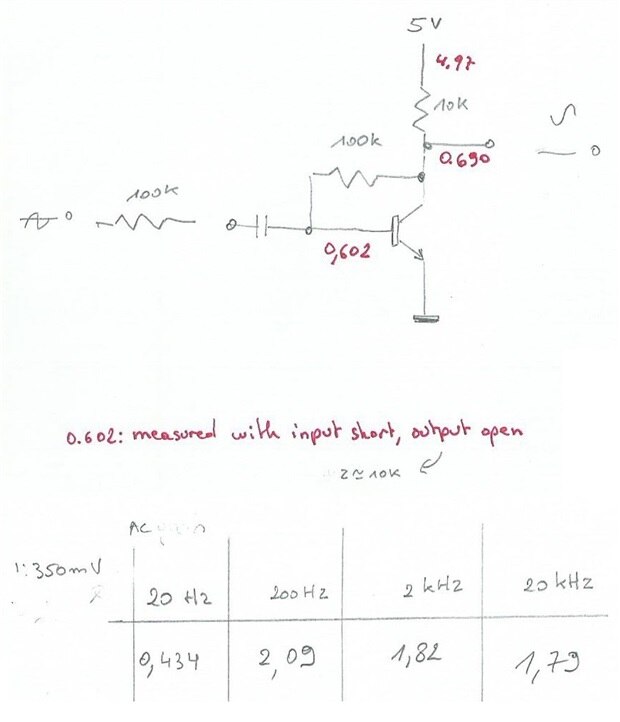 5V
4.97
10k
100k
0.690
0
100k
0
0,602
0.602: measured with input short, output open
Z≈10k
AC
1:350mV
20 Hz
200Hz
2 kHz
20 kHz
0,434
2,09
1,82
1,79